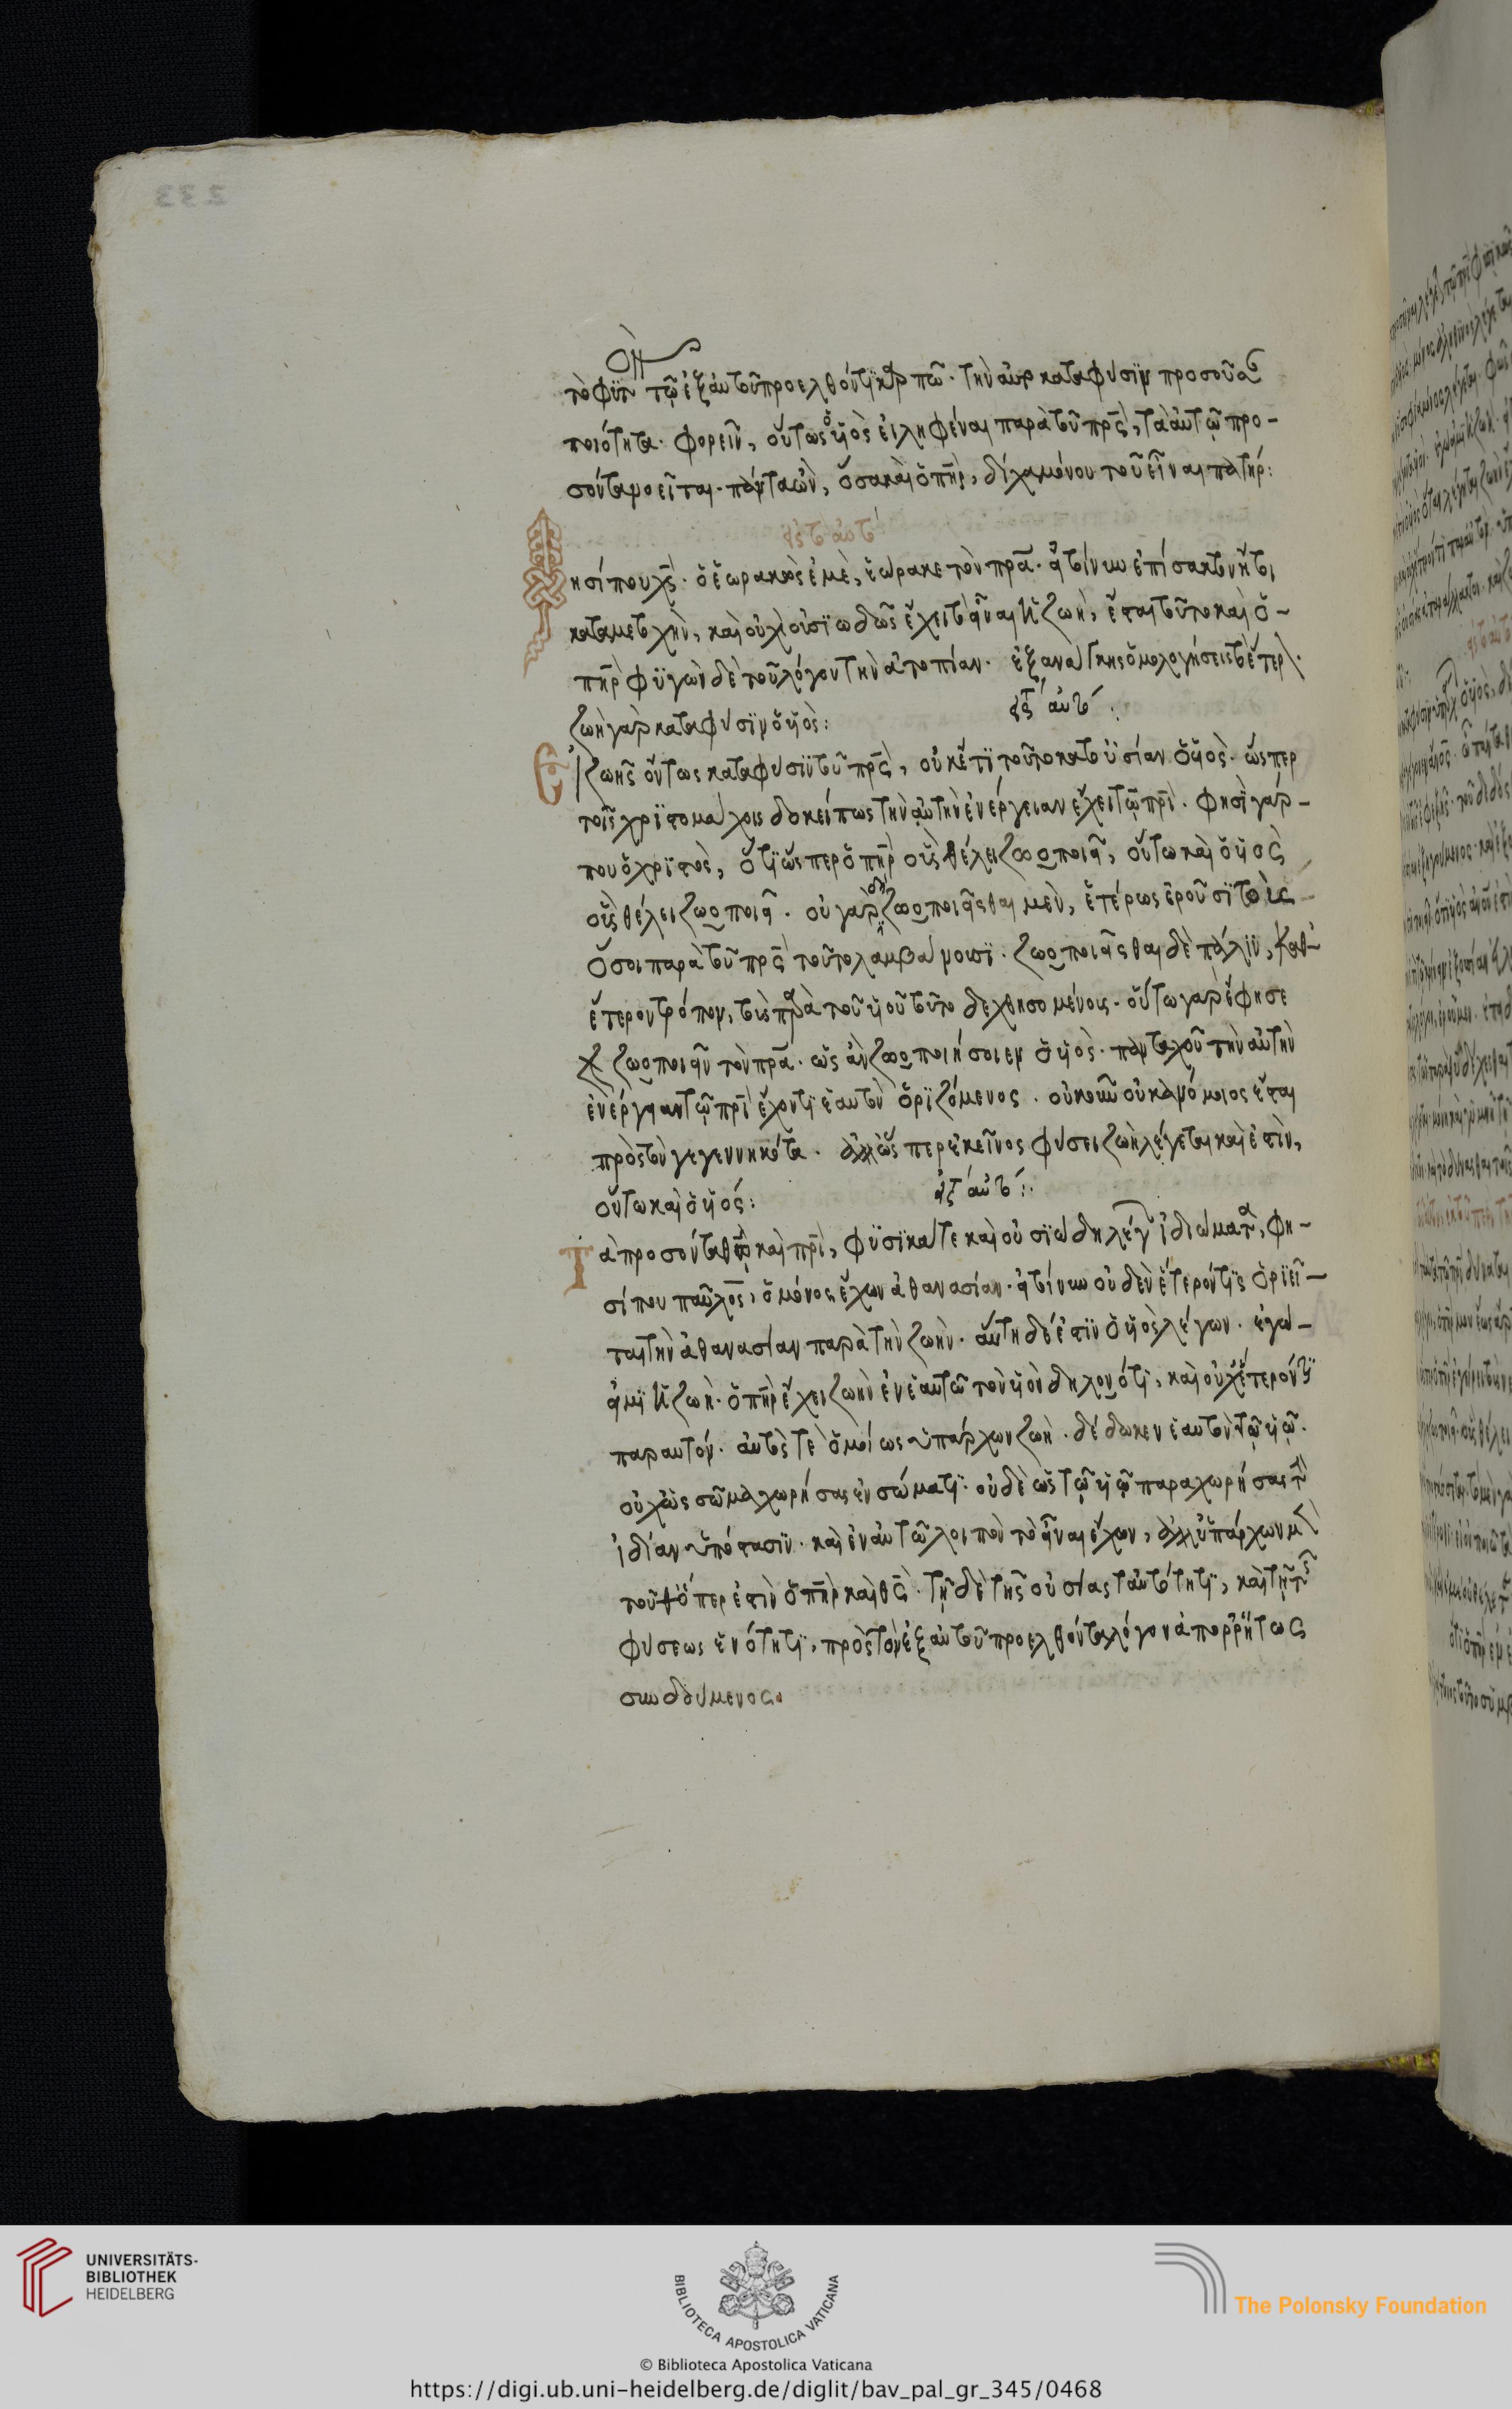 τὸ φυτὸν τῶ ἐξ αὐτοῦ προελθόντι καρπῶ. τὴν αὐτῶ κατὰ φύσιν προσοῦσαν
ποιότητα φορεῖν, οὕτως ὁ υἱὸς εἰληφέναι παρὰ τοῦ πρς, τὰ αὐτῶ προ-
σόντα νοεῖται. πάντα ὧν, ὅσα καὶ ὁ πηρ, δίχα μόνου τοῦ εἶναι πατήρ:
ἐκ τοῦ αὐτοῦ
ησί που χς. ὁ ἑωρακὼς ἐμὲ, ἑώρακε τὸν πρα. εἰ τοίνυν ἐπίσακτον ἥτοι
κατὰ μετοχὴν, καὶ οὐκ οὐσιωδῶς ἔχει τὸ εἶναι ἡ ζωὴ, ἔσται τοῦτο καὶ ὁ
πηρ φυγὼν δὲ τοῦ λόγου τὴν ἀτοπίαν. ἐξ ἀνάγκης ὁμολογήσεις τὸ ἕτερον.
ζωὴ γὰρ κατὰ φύσιν ὁ υἱὸς: ἐκ τοῦ αὐτοῦ:
Ει ζωῆς ὄντως κατὰ φύσιν τοῦ πρς, οὐκ ἔτι τοῦτο κατ οὐσίαν ὁ υἱὸς. ὥσπερ
τοῖς χριστομάχοις δοκεί πως τὴν αὐτὴν ἐνέργειαν ἔχει τῶ πρι. φησὶ γάρ
που ὁ χριστὸς, ὅτι ὥσπερ ὁ πηρ οὓς θέλει ζωοποιεῖ, οὕτω καὶ ὁ υἱὸς
οὓς θέλει ζωοποιεῖ. οὐ γὰρ δὴ ζωοποιεῖσθαι μὲν, ἑτέρως ἐροῦσι τοὶς
ὅσοι παρὰ τοῦ πρς τοῦτο λαμβάνουσι. ζωοποιεῖσθαι δὲ πάλιν, καθ
ἕτερον τρόπον, τοὺς παρὰ τοῦ υἱοῦ τοῦτο δεχθησομένοις. οὕτω γὰρ ἔφησε
ζωοποιεῖν τὸν πρα. ὡς ἂν ζωοποιήσοιεν ὁ υἱὸς. πανταχοῦ τὴν αὐτὴν
ἐνέργειαν τῶ πρι ἔχοντι ἑαυτὸν ὁριζόμενος. οὐκοῦν οὐκ ἀνόμοιος ἔσται
πρὸς τὸν γεγεννηκότα. ἀλλ ὥσπερ ἐκεῖνος φύσει ζωὴ λέγεται καὶ ἐστὶν,
οὕτω καὶ ὁ υἱός: ἐκ τοῦ αὐτοῦ:
Τὰ προσόντα θεῶ καὶ πρι, φυσικά τε καὶ οὐσιώδη λέγει ἰδιώματα, φη-
σί που παῦλος, ὁ μόνος ἔχων ἀθανασίαν. εἰ τοίνυν οὐδὲν ἕτερόν τις ὁριεῖ-
ται τὴν ἀθανασίαν παρὰ τὴν ζωὴν. αὕτη δέ ἐστιν ὁ υἱὸς λέγων. ἐγώ
εἰμι ἡ ζωὴ. ὁ πηρ ἔχει ζωὴν ἐν ἑαυτῶ τὸν υἱὸν δηλονότι, καὶ οὐχ ἕτερόν τι
παρ αυτόν. αὐτὸς τὲ ὁμοίως ὑπάρχων ζωὴ. δέδωκεν ἑαυτὸν τῶ υἱῶ.
οὐχ ὡς σῶμα χωρήσας ἐν σώματι. οὐδὲ ὡς τῶ υἱῶ παραχωρήσας τὴν
ἰδίαν ὑπόστασιν. καὶ ἐν αὐτῶ λοιπὸν τὸ εἶναι ἔχων, ἀλλ ὑπάρχων μὲν
τοῦθ ὅπερ ἐστὶν ὁ πηρ καὶ θς. τῇ δὲ τῆς οὐσίας ταυτότητι, καὶ τῇ τῆς
φύσεως ἑνότητι, πρὸς τὸν ἐξ αὐτοῦ προελθόντα λόγον ἀπορρήτως
συνδούμενος.
UNIVERSITÄTS-
BIBLIOTHEK
HEIDELBERG
BIBLIOTECA APOSTOLICA VATICANA
The Polonsky Foundation
© Biblioteca Apostolica Vaticana
https://digi.ub.uni-heidelberg.de/diglit/bav_pal_gr_345/0468